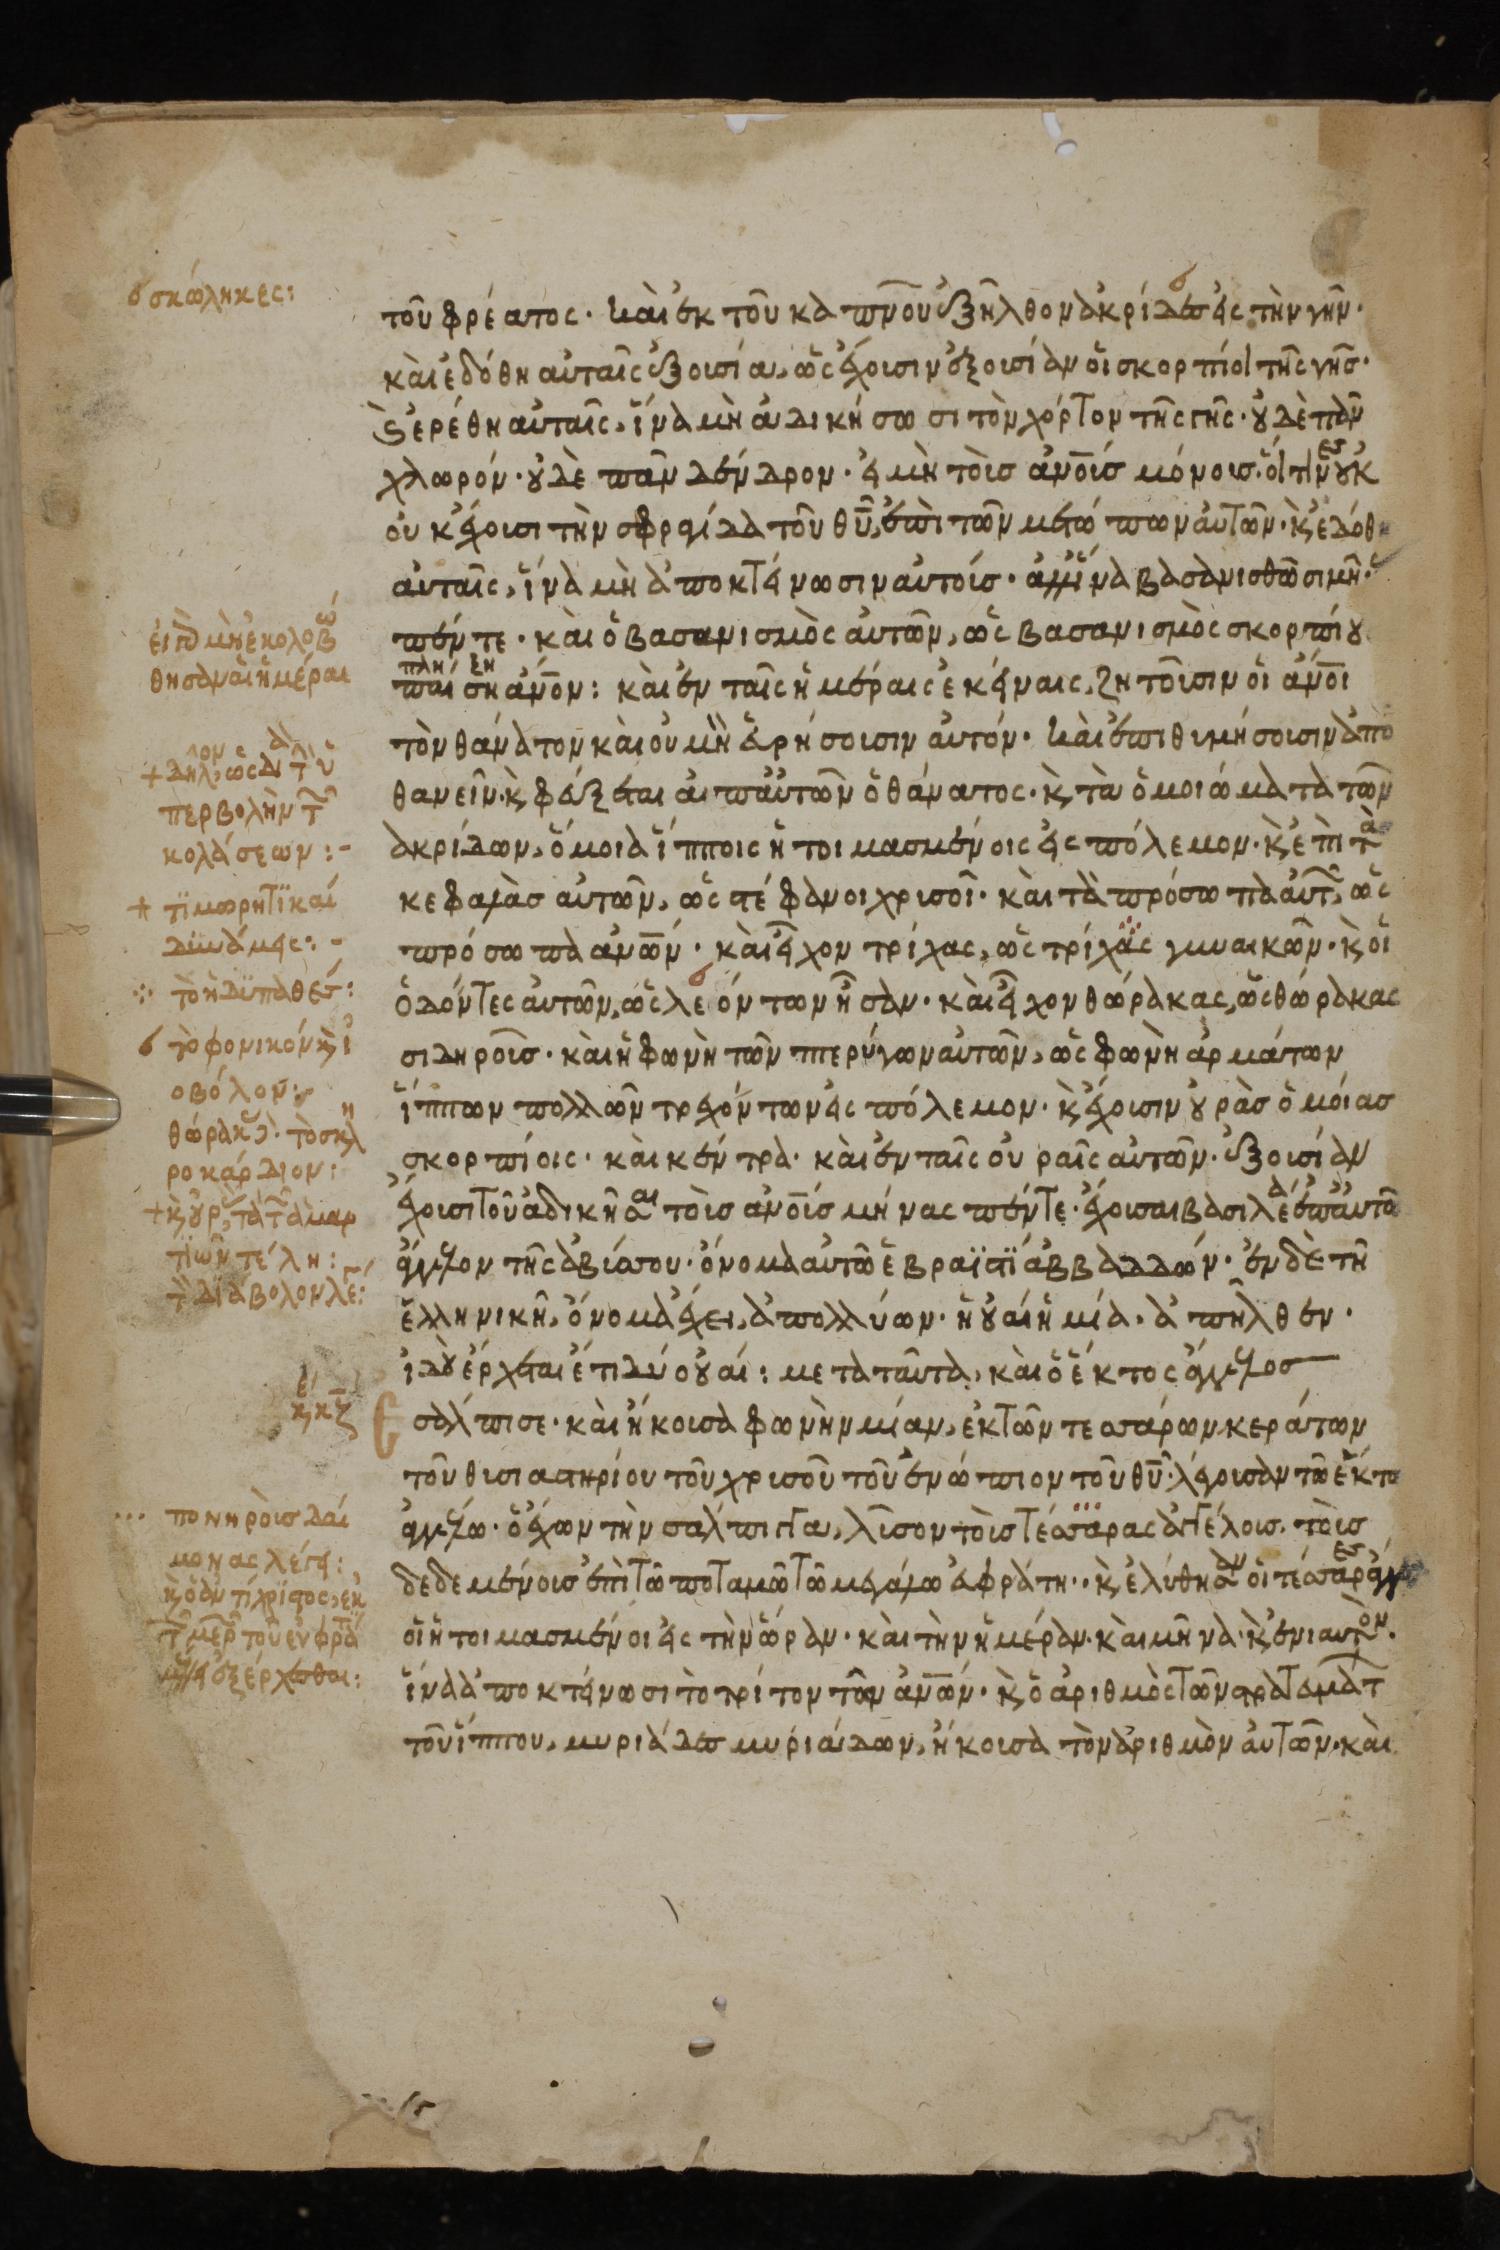 σκώληκες:
τοῦ φρέατος. καὶ ἐκ τοῦ καπνοῦ ἐξῆλθον ἀκρίδες εἰς τὴν γῆν.
καὶ ἐδόθη αὐταῖς ἐξουσία, ὡς ἔχουσιν ἐξουσίαν οἱ σκορπίοι τῆς γῆς.
κ ἐρέθη αὐταῖς, ἵνα μὴ ἀδικήσωσι τὸν χόρτον τῆς γῆς. οὐδὲ πᾶν
χλωρόν. οὐδὲ πᾶν δένδρον. εἰ μὴ τοὺς ἀνο̅υς μόνους. οἵτινες οὐκ
οὐκ ἔχουσι τὴν σφραγίδα τοῦ θυ̅, ἐπὶ τῶν μετώπων αὐτῶν. κ ἐδόθη
αὐταῖς, ἵνα μὴ ἀποκτείνωσιν αὐτούς. ἀλλ' ἵνα βασανισθῶσι μῆ.
εἰ μὴ ἐκολοβώ
θησαν αἱ ἡμέραι
πέντε. καὶ ὁ βασανισμὸς αὐτῶν, ὡς βασανισμὸς σκορπίου
πλήξη
παίση ἀνο̅ν: καὶ ἐν ταῖς ἡμέραις ἐκείναις, ζητοῦσιν οἱ ἀνο̅ι
τὸν θάνατον καὶ οὐ μὴ εὑρήσουσιν αὐτόν. καὶ ἐπιθυμήσουσιν ἀπο
θανεῖν. κ φεύξεται ἀπ' αὐτῶν ὁ θάνατος. κ τὰ ὁμοιώματα τῶν
+ δηλον, ὡς διὰ τ ὑ
περβολὴν τ
κολάσεων:-
ἀκρίδων, ὅμοια ἵπποις ἡτοιμασμένοις εἰς πόλεμον. κ ἐπὶ τὰς
κεφαλὰς αὐτῶν, ὡς στέφανοι χρυσοῖ. καὶ τὰ πρόσωπα αὐτ, ὡς
+ τϊμωρητϊκαί
δυνάμεις:-
πρόσωπα ἀνω̅ν. καὶ εἶχον τρίχας, ὡς τρίχας γυναικῶν. κ οἱ
τὸ ἡδυπαθές:
ὀδόντες αὐτῶν, ὡς λεόντων ἦσαν. καὶ εἶχον θώρακας, ὡς θώρακας
τὸ φονικόν κ ἰ
οβόλον:
σιδηροῦς. καὶ ἡ φωνὴ τῶν πτερύγων αὐτῶν, ὡς φωνὴ ἁρμάτων
ἵππων πολλῶν τρεχόντων εἰς πόλεμον. κ ἔχουσιν οὐρὰς ὁμοίας
θώρακας. τὸ σκλη
ροκάρδιον:
σκορπίοις. καὶ κέντρα. καὶ ἐν ταῖς οὐραῖς αὐτῶν. ἐξουσίαν
ἔχουσι τοῦ ἀδικῆσαι τοὺς ἀνο̅υς μῆνας πέντε. ἔχουσαι βασιλέα ἐπ' αὐτῶ
+ κ οὐρ, τὰ τ ἁμαρ
τϊῶν τέλη:
τ διάβολον λέ:
ἄγγελον τῆς ἀβύσσου. ὄνομα αὐτῶ ἑβραϊστϊ ἀββαδδών. ἐν δὲ τῆ
ἑλληνικῆ, ὄνομα ἔχει, ἀπολλύων. ἡ οὐαὶ ἡ μία. ἀπῆλθεν.
ἰδοὺ ἔρχεται ἔτι δύο οὐαί: μετὰ ταῦτα, καὶ ὁ ἕκτος ἄγγελος
κε κζ
ἐσάλπισε. καὶ ἤκουσα φωνὴν μίαν, ἐκ τῶν τεσσάρων κεράτων
τοῦ θυσιαστηρίου τοῦ χρυσοῦ τοῦ ἐνώπιον τοῦ θυ̅. λέγουσαν τῶ ἕκτω
ἀγγέλω. ὁ ἔχων τὴν σάλπιγγα, λῦσον τοὺς τέσσαρας ἀγγέλους. τοὺς
πονηροὺς δαί
μονας λέγει:
δεδεμένους ἐπὶ τῶ ποταμῶ τῶ μεγάλω εὐφράτη. κ ἐλύθησαν οἱ τέσσαρες ἄγγ
κ ὁ ἀντίχρϊστος, ἐκ
τ μερ τοῦ εὐφρά
ἐξέρχεσθαι:
οἱ ἡτοιμασμένοι εἰς τὴν ὥραν. καὶ τὴν ἡμέραν. καὶ μῆνα. κ ἐνιαυτόν.
ἵνα ἀποκτείνωσι τὸ τρίτον τῶν ἀνω̅ν. κ ὁ ἀριθμὸς τῶν στρατευμάτ
τοῦ ἵππου, μυριάδες μυριάδων, ἤκουσα τὸν ἀριθμὸν αὐτῶν. καὶ